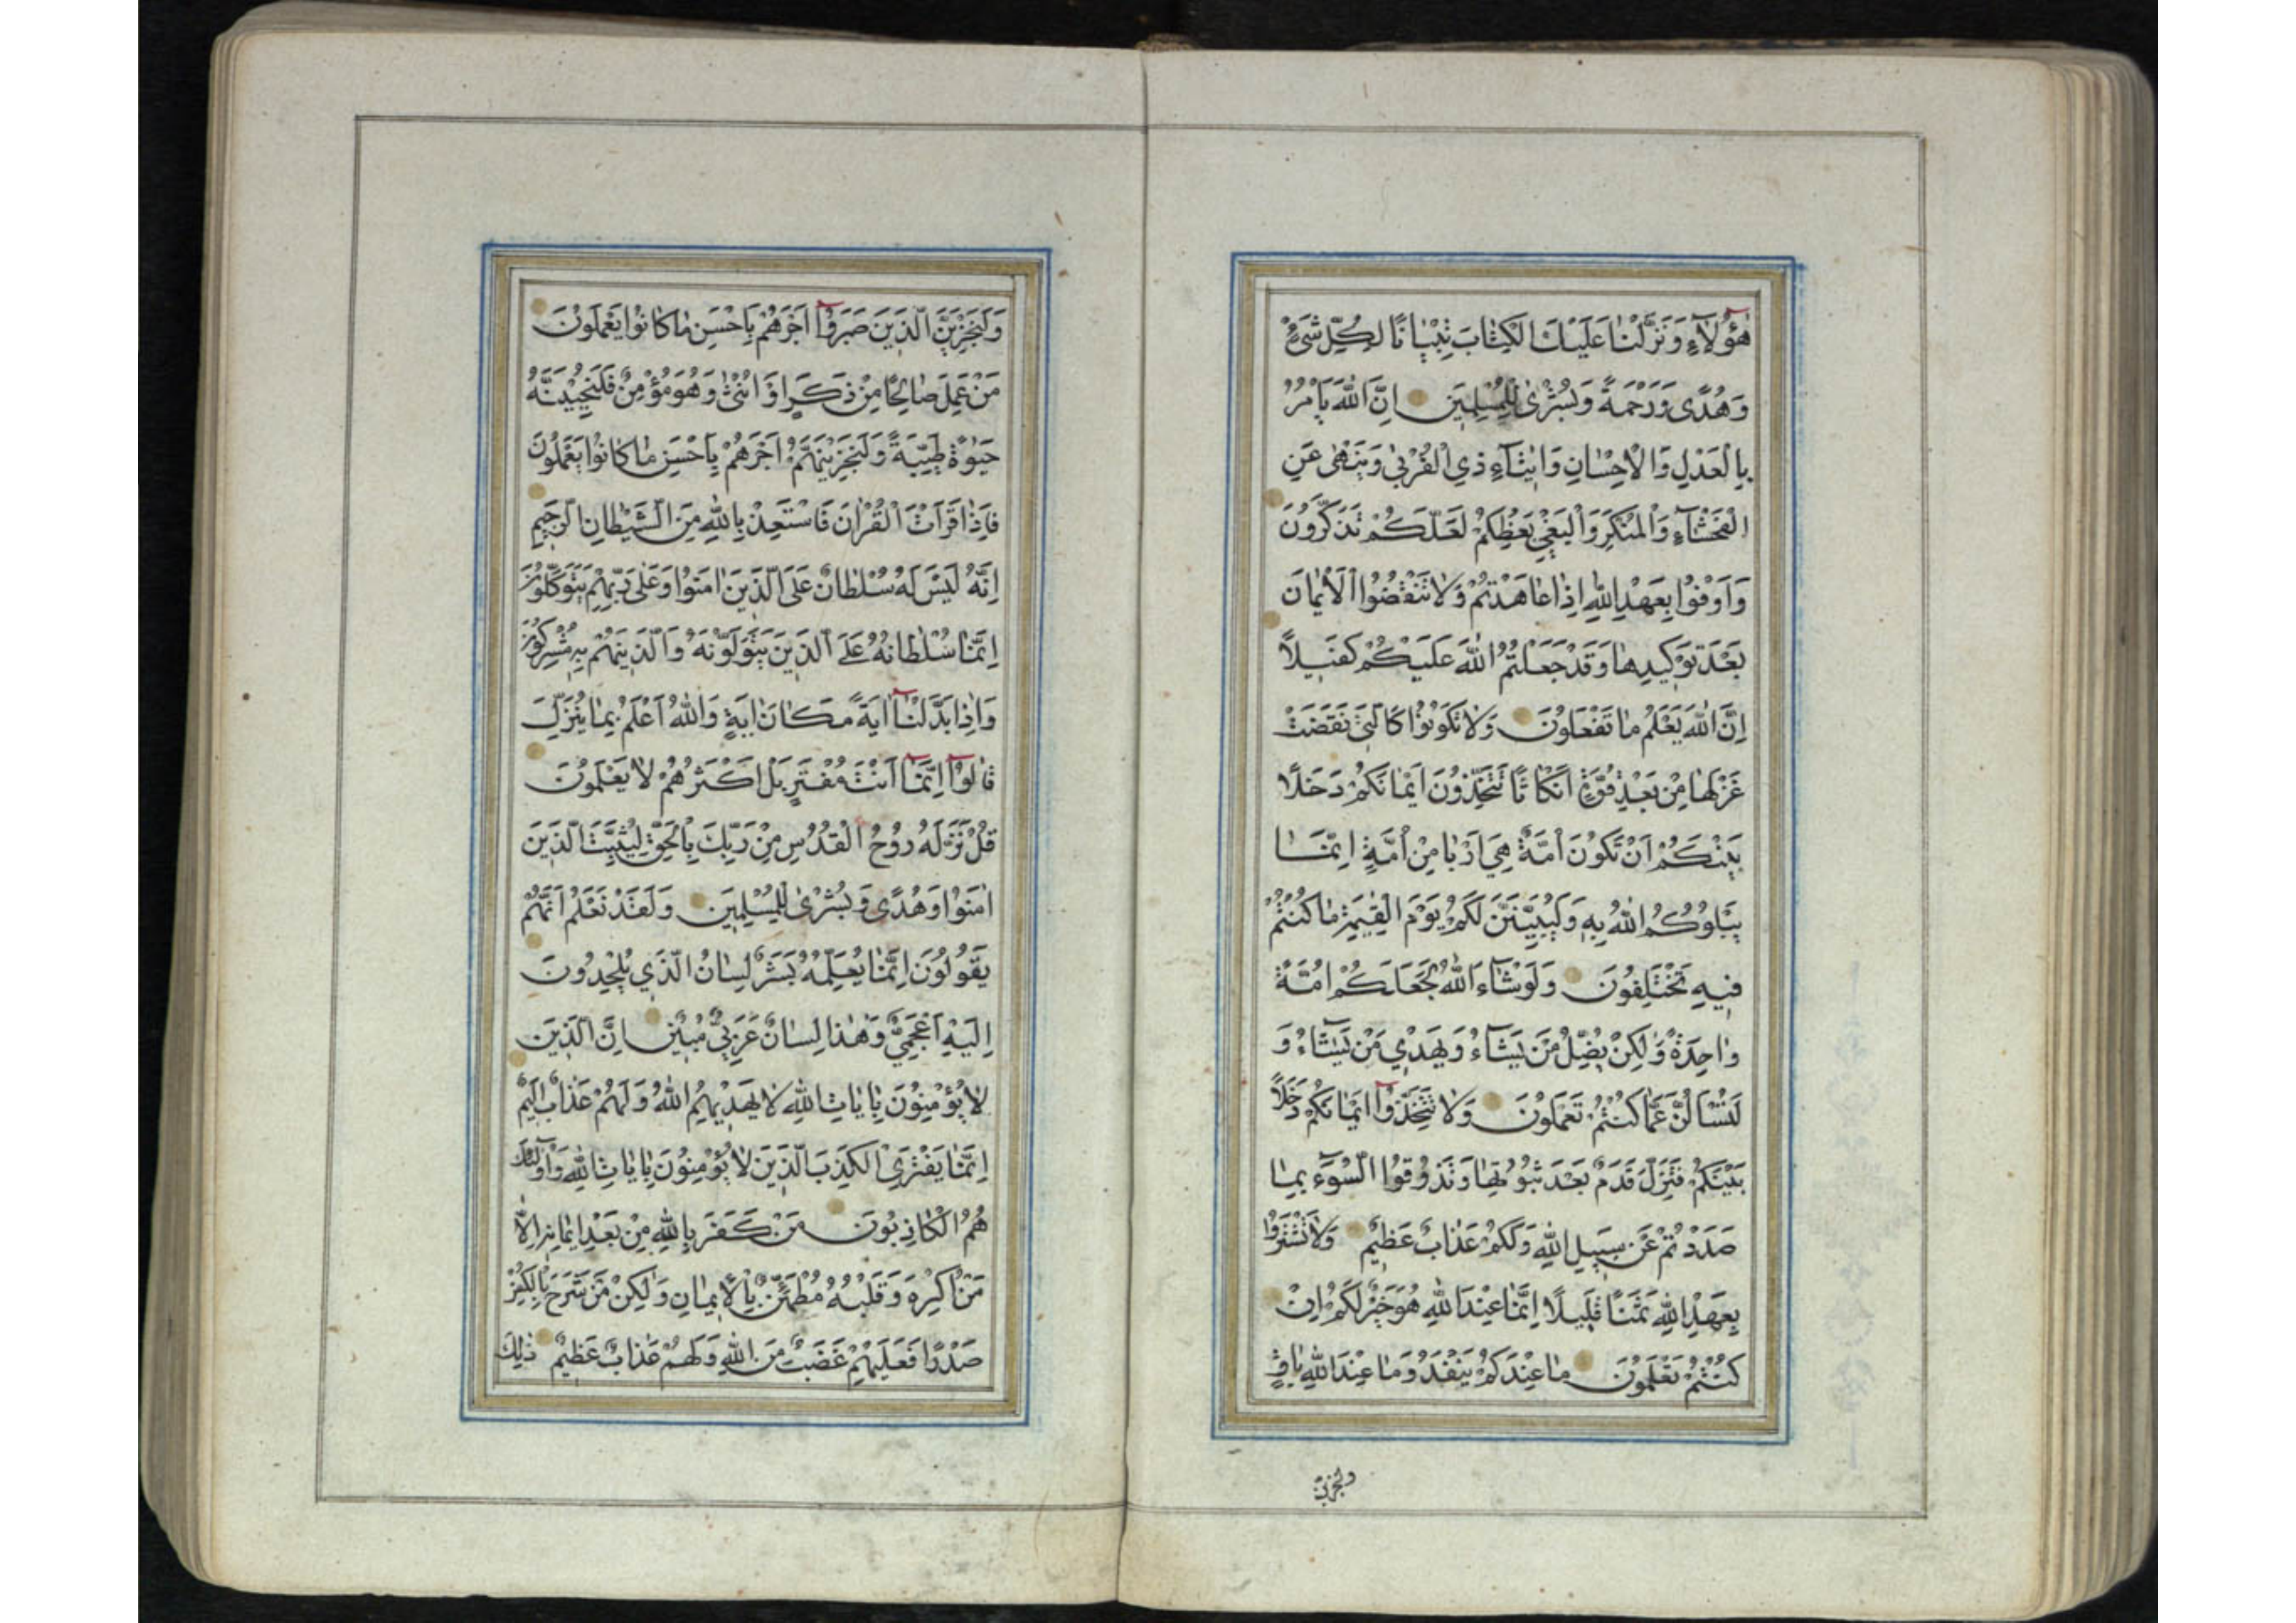 هٰؤُلَآءِ وَنَزَّلْنَا عَلَيْكَ الْكِتَابَ تِبْيَانًا لِكُلِّ شَيْءٍ
وَهُدًى وَرَحْمَةً وَبُشْرٰى لِلْمُسْلِمِينَ اِنَّ اللّٰهَ يَأْمُرُ
بِالْعَدْلِ وَالْاِحْسَانِ وَاِيتَآءِ ذِي الْقُرْبٰى وَيَنْهٰى عَنِ
الْفَحْشَآءِ وَالْمُنْكَرِ وَالْبَغْيِ يَعِظُكُمْ لَعَلَّكُمْ تَذَكَّرُونَ
وَاَوْفُوا بِعَهْدِ اللّٰهِ اِذَا عَاهَدْتُمْ وَلَا تَنْقُضُوا الْاَيْمَانَ
بَعْدَ تَوْكِيدِهَا وَقَدْ جَعَلْتُمُ اللّٰهَ عَلَيْكُمْ كَفِيلًا
اِنَّ اللّٰهَ يَعْلَمُ مَا تَفْعَلُونَ وَلَا تَكُونُوا كَالَّتِي نَقَضَتْ
غَزْلَهَا مِنْ بَعْدِ قُوَّةٍ اَنْكَاثًا تَتَّخِذُونَ اَيْمَانَكُمْ دَخَلًا
بَيْنَكُمْ اَنْ تَكُونَ اُمَّةٌ هِيَ اَرْبٰى مِنْ اُمَّةٍ اِنَّمَا
يَبْلُوكُمُ اللّٰهُ بِهِ وَلَيُبَيِّنَنَّ لَكُمْ يَوْمَ الْقِيٰمَةِ مَا كُنْتُمْ
فِيهِ تَخْتَلِفُونَ وَلَوْ شَآءَ اللّٰهُ لَجَعَلَكُمْ اُمَّةً
وَاحِدَةً وَلٰكِنْ يُضِلُّ مَنْ يَشَآءُ وَيَهْدِي مَنْ يَشَآءُ وَ
لَتُسْاَلُنَّ عَمَّا كُنْتُمْ تَعْمَلُونَ وَلَا تَتَّخِذُوا اَيْمَانَكُمْ دَخَلًا
بَيْنَكُمْ فَتَزِلَّ قَدَمٌ بَعْدَ ثُبُوتِهَا وَتَذُوقُوا السُّوءَ بِمَا
صَدَدْتُمْ عَنْ سَبِيلِ اللّٰهِ وَلَكُمْ عَذَابٌ عَظِيمٌ وَلَا تَشْتَرُوا
بِعَهْدِ اللّٰهِ ثَمَنًا قَلِيلًا اِنَّمَا عِنْدَ اللّٰهِ هُوَ خَيْرٌ لَكُمْ اِنْ
كُنْتُمْ تَعْلَمُونَ مَا عِنْدَكُمْ يَنْفَدُ وَمَا عِنْدَ اللّٰهِ بَاقٍ
ولنجزين
وَلَنَجْزِيَنَّ الَّذِينَ صَبَرُوا اَجْرَهُمْ بِاَحْسَنِ مَا كَانُوا يَعْمَلُونَ
مَنْ عَمِلَ صَالِحًا مِنْ ذَكَرٍ اَوْ اُنْثٰى وَهُوَ مُؤْمِنٌ فَلَنُحْيِيَنَّهُ
حَيٰوةً طَيِّبَةً وَلَنَجْزِيَنَّهُمْ اَجْرَهُمْ بِاَحْسَنِ مَا كَانُوا يَعْمَلُونَ
فَاِذَا قَرَاْتَ الْقُرْاٰنَ فَاسْتَعِذْ بِاللّٰهِ مِنَ الشَّيْطَانِ الرَّجِيمِ
اِنَّهُ لَيْسَ لَهُ سُلْطَانٌ عَلَى الَّذِينَ اٰمَنُوا وَعَلٰى رَبِّهِمْ يَتَوَكَّلُونَ
اِنَّمَا سُلْطَانُهُ عَلَى الَّذِينَ يَتَوَلَّوْنَهُ وَالَّذِينَ هُمْ بِهِ مُشْرِكُونَ
وَاِذَا بَدَّلْنَآ اٰيَةً مَكَانَ اٰيَةٍ وَاللّٰهُ اَعْلَمُ بِمَا يُنَزِّلُ
قَالُوا اِنَّمَآ اَنْتَ مُفْتَرٍ بَلْ اَكْثَرُهُمْ لَا يَعْلَمُونَ
قُلْ نَزَّلَهُ رُوحُ الْقُدُسِ مِنْ رَبِّكَ بِالْحَقِّ لِيُثَبِّتَ الَّذِينَ
اٰمَنُوا وَهُدًى وَبُشْرٰى لِلْمُسْلِمِينَ وَلَقَدْ نَعْلَمُ اَنَّهُمْ
يَقُولُونَ اِنَّمَا يُعَلِّمُهُ بَشَرٌ لِسَانُ الَّذِي يُلْحِدُونَ
اِلَيْهِ اَعْجَمِيٌّ وَهٰذَا لِسَانٌ عَرَبِيٌّ مُبِينٌ اِنَّ الَّذِينَ
لَا يُؤْمِنُونَ بِاٰيَاتِ اللّٰهِ لَا يَهْدِيهِمُ اللّٰهُ وَلَهُمْ عَذَابٌ اَلِيمٌ
اِنَّمَا يَفْتَرِي الْكَذِبَ الَّذِينَ لَا يُؤْمِنُونَ بِاٰيَاتِ اللّٰهِ وَاُولٰٓئِكَ
هُمُ الْكَاذِبُونَ مَنْ كَفَرَ بِاللّٰهِ مِنْ بَعْدِ اِيمَانِهِ اِلَّا
مَنْ اُكْرِهَ وَقَلْبُهُ مُطْمَئِنٌّ بِالْاِيمَانِ وَلٰكِنْ مَنْ شَرَحَ بِالْكُفْرِ
صَدْرًا فَعَلَيْهِمْ غَضَبٌ مِنَ اللّٰهِ وَلَهُمْ عَذَابٌ عَظِيمٌ ذٰلِكَ